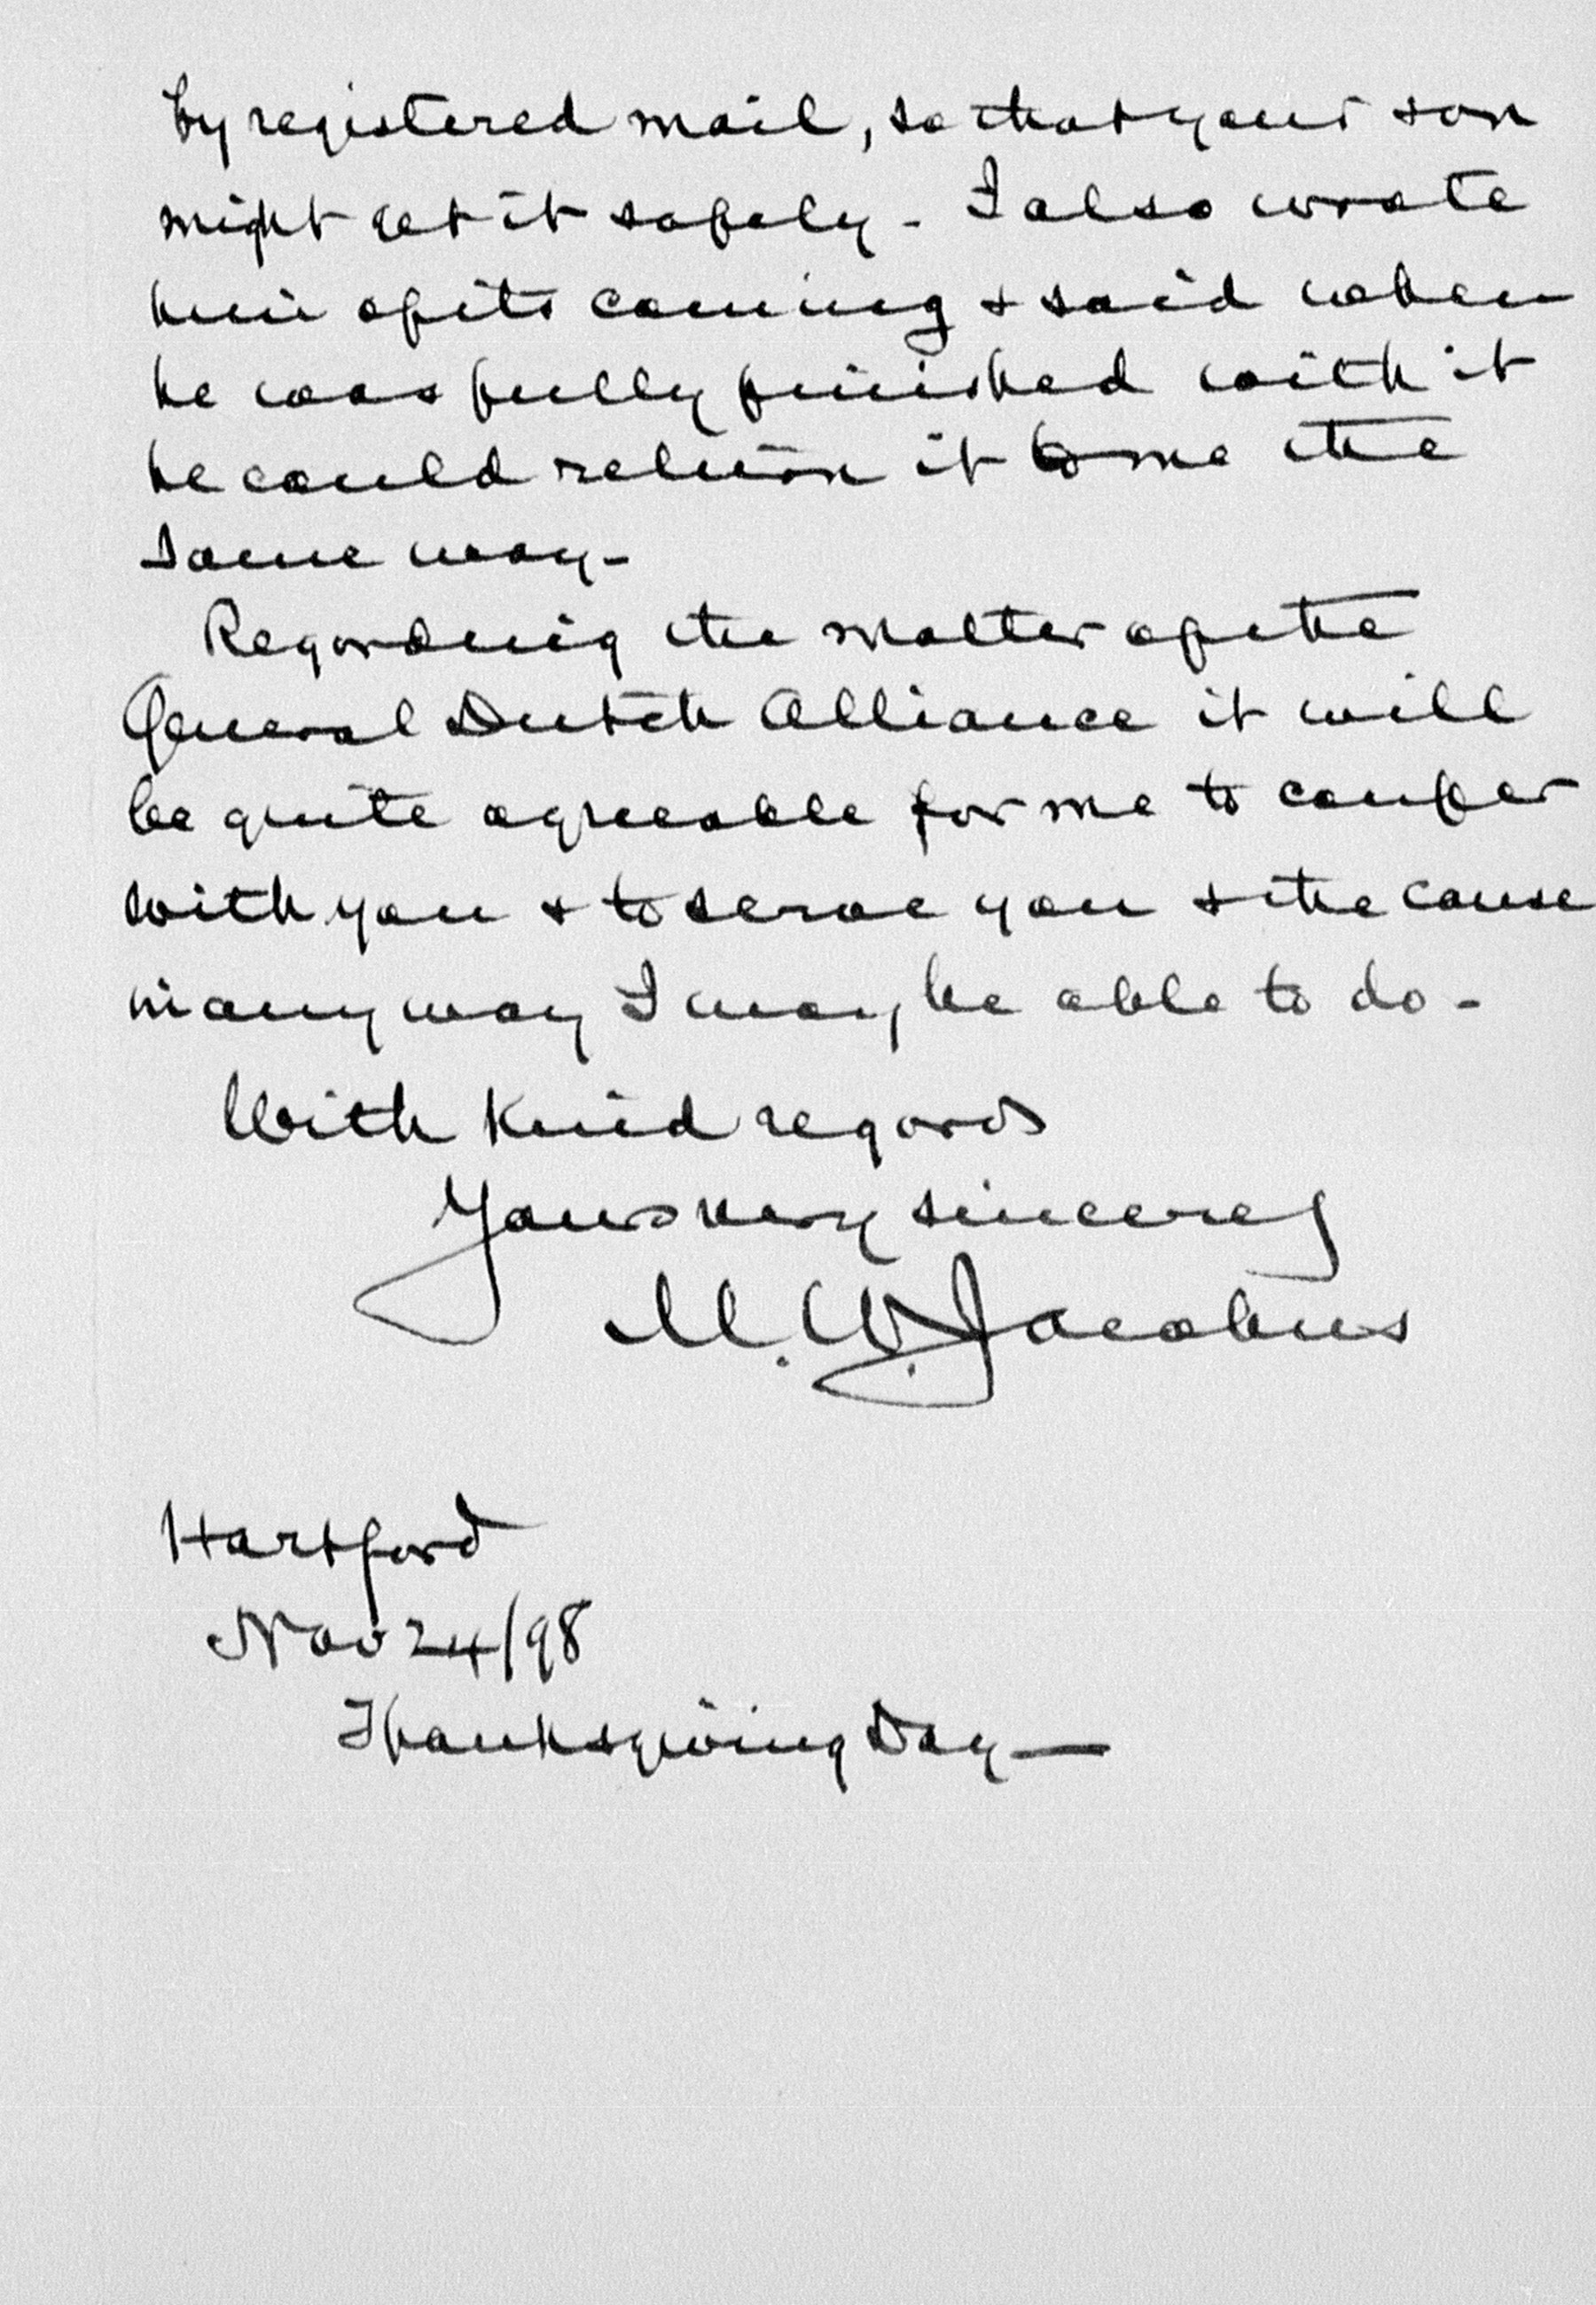 by registered mail, so that your son
might get it safely - I also wrote
him of its coming & said when
he was fully finished with it
he could return it to me the
same way -
Regarding the matter of the
General Dutch Alliance it will
be quite agreeable for me to confer
with you & to serve you & the cause
in any way I may be able to do -
With kind regards
Yours very sincerely
M. W. Jacobus
Hartford
Nov 24/98
Thanksgiving Day —